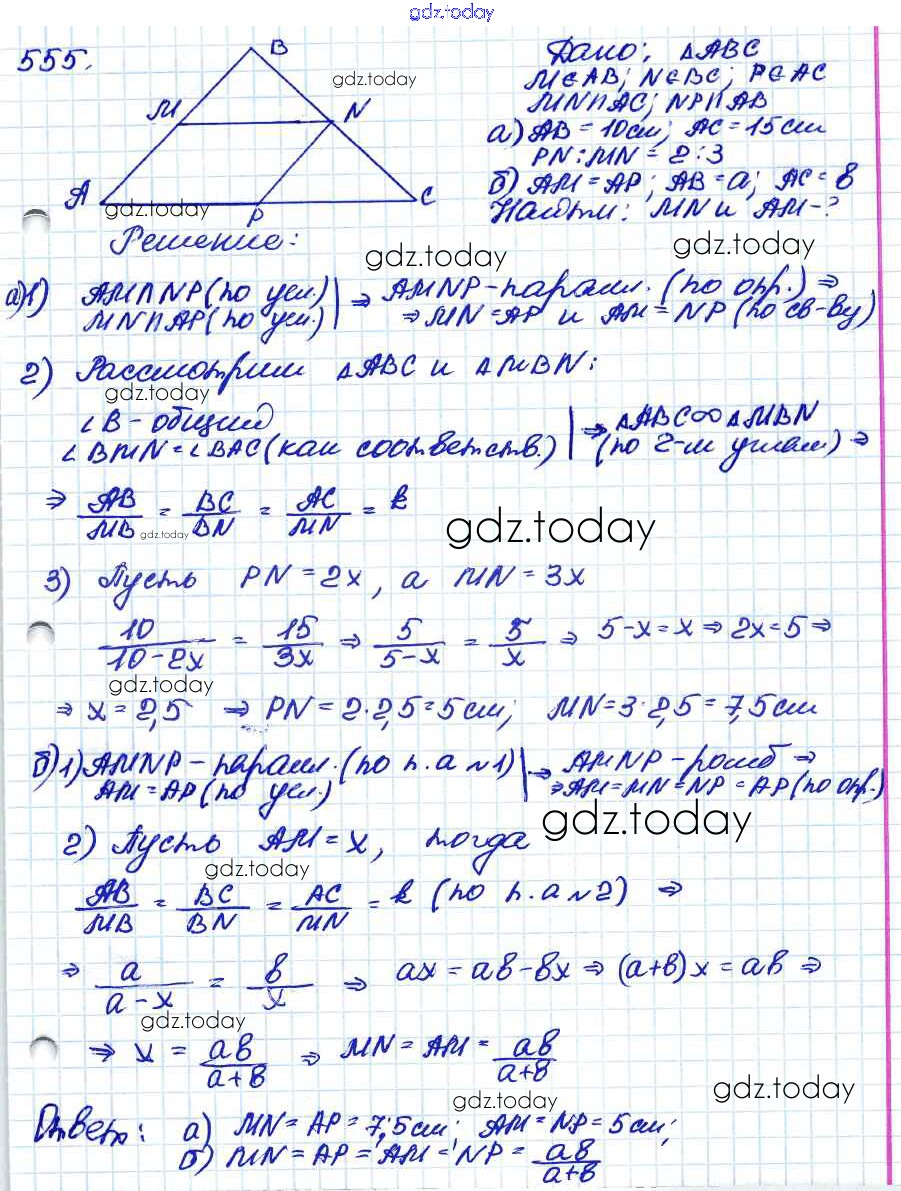 gdz.today
555.
B
gdz.today
M
N
A
gdz.today
P
C
Дано: △ABC
M∈AB; N∈BC; P∈AC
MN∩AC; NP∩AB
а) AB = 10см; AC = 15см
PN : MN = 2 : 3
б) AM = AP; AB = a; AC = в
Найти: MN и AM - ?
Решение:
gdz.today
gdz.today
а)1) AM∩NP (по усл.) | ⇒ AMNP - парал. (по опр.) ⇒
MN∩AP (по усл.) | ⇒ MN = AP и AM = NP (по св-ву)
2) Рассмотрим △ABC и △MBN:
gdz.today
∠B - общий | ⇒ △ABC∞△MBN
∠BMN = ∠BAC (как соответств.) | (по 2-м углам) ⇒
⇒ AB/MB = BC/BN = AC/MN = k
gdz.today
gdz.today
3) Пусть PN = 2x, а MN = 3x
10/(10-2x) = 15/3x ⇒ 5/(5-x) = 5/x ⇒ 5-x = x ⇒ 2x = 5 ⇒
gdz.today
⇒ x = 2,5 ⇒ PN = 2·2,5 = 5см; MN = 3·2,5 = 7,5см
б)1) AMNP - парал. (по п. а N1) | ⇒ AMNP - ромб ⇒
AM = AP (по усл.) | ⇒ AM = MN = NP = AP (по опр.)
gdz.today
2) Пусть AM = x, тогда
gdz.today
AB/MB = BC/BN = AC/MN = k (по п. а N2) ⇒
⇒ a/(a-x) = в/x ⇒ ax = aв - вx ⇒ (a+в)x = aв ⇒
gdz.today
⇒ x = aв/(a+в) ⇒ MN = AM = aв/(a+в)
gdz.today
gdz.today
Ответ: а) MN = AP = 7,5см; AM = NP = 5см;
б) MN = AP = AM = NP = aв/(a+в)